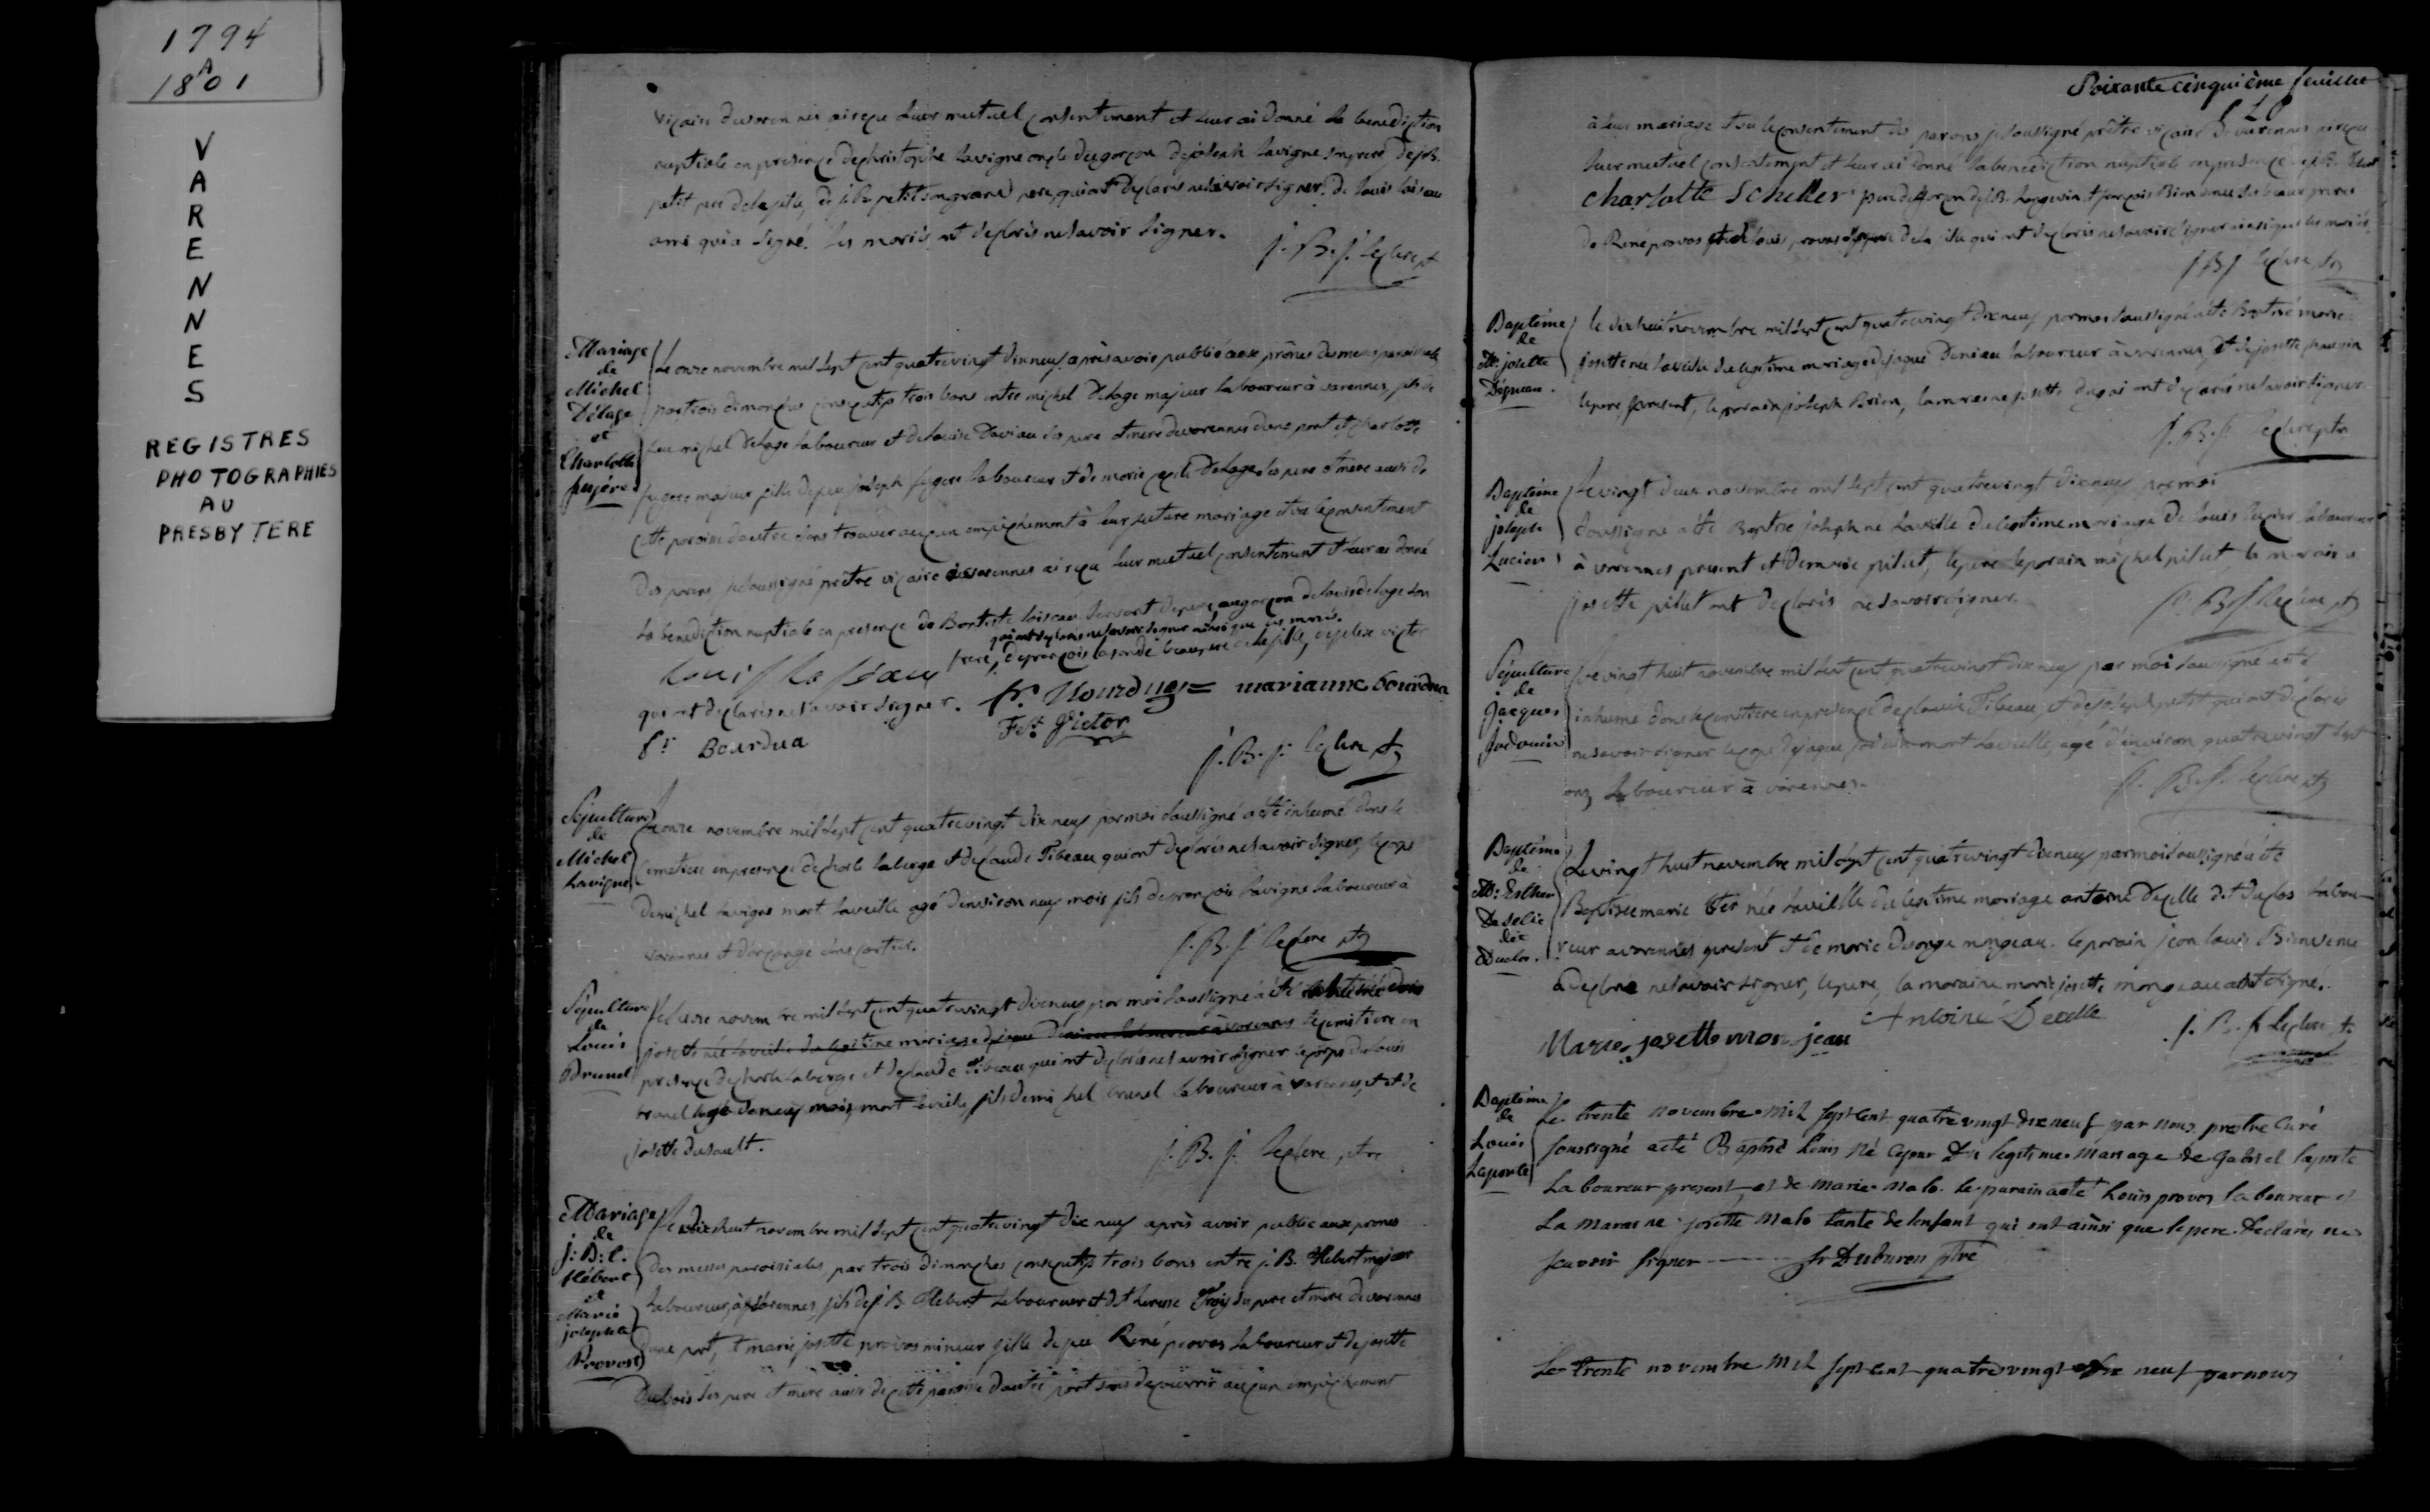 1794
A
1801
V
A
R
E
N
N
E
S
REGISTRES
PHOTOGRAPHIES
AU
PRESBYTERE
vicaire de varennes ai reçu leur mutuel consentement et leur ai donné la benediction
nuptiale en presence de christophe lavigne oncle du garçon de joseph lavigne son frere de j.B.
petit pere de la fille, de petit son grand pere, qui ont declaré ne savoir signer. de louis loiseau
ami qui a signé. les mariés ont declaré ne savoir signer.
j. B. j. leclerc ptr
Mariage
de
Michel
Delage
et
Charlotte
fugére
Le onze novembre mil sept cent quatrevingt dixneuf après avoir publié aux prônes des messes paroissiales
par trois dimanches consecutifs trois bans entre michel Delage majeur laboureur à varennes, fils de
feu michel Delage laboureur et de louise Daviau ses pere et mere de varennes d'une part et charlotte
fugere majeur fille de feu joseph fugere laboureur et de marie Delage ses pere et mere aussi de
cette paroisse d'autre sans trouver aucun empêchement à leur future mariage et vu le consentement
des parens, je soussigné prêtre vicaire de varennes ai reçu leur mutuel consentement et leur ai donné
la benediction nuptiale en presence de Baptiste loiseau servant de pere au garçon de louis delage son
qui ont declaré ne savoir signer ainsi que les mariés.
frere, de françois beaupere de la fille, de felix victor
Louis
qui ont declaré ne savoir signer.
marianne bourdua
Fx Victor
fr Bourdua
j. B. j. leclerc ptr
Sépulture
de
Michel
Lavigne
Le onze novembre mil sept cent quatrevingt dix neuf par moi soussigné a été inhumé dans le
cimetiere en presence de charle laberge et de claude Tibeau qui ont declaré ne savoir signer, le corps
de michel lavigne mort la veille agé d'environ neuf mois fils de françois lavigne laboureur à
varennes et
j. B. j. leclerc ptr
Sépulture
de
Louis
Brunel
Le onze novembre mil sept cent quatrevingt dixneuf par moi soussigné a été
josette née la veille du legitime mariage de jaque Deniau laboureur à varennes le cimetiere en
presence de charle laberge et de claude Tibeau qui ont declaré ne savoir signer le corps de louis
brunel agé de neuf mois, mort la veille, fils de michel brunel laboureur à varennes, et de
josette dusault.
j. B. j. leclerc ptr
Mariage
de
j: B: l.
Hébert
et
Marie
josephte
Provost
Le dixhuit novembre mil sept cent quatrevingt dix neuf après avoir publié aux prones
des messes paroissiales par trois dimanches consecutifs trois bans entre j. B. Hebert majeur
laboureur à varennes, fils de j B Hebert laboureur et de therese ses pere et mere de varennes
d'une part, et marie josette provos mineur fille de feu René provos laboureur et de josette
Dubois ses pere et mere aussi de cette paroisse d'autre part sans decouvrir aucun empêchement
Soixante cinquième feuillet
à leur mariage et vu le consentement des parens je soussigné prêtre vicaire de varennes ai reçu
leur mutuel consentement et leur ai donné la benediction nuptiale en presence de j.B. Hebert
charlotte Scheller pere du garçon de j.B. et françois Bienvenu ses beaux freres
de René provos et de louis provos frere de la fille qui ont declaré ne savoir signer ainsi que les mariés.
j B j leclerc ptr
Baptême
de
M: josette
Dégneau
le dixhuit novembre mil sept cent quatrevingt dixneuf par moi soussigné a été Baptisé marie
josette née la veille du legitime mariage de jaque Deniau laboureur à varennes et de josette
le pere present, le parain joseph Brien, la maraine josette ont declaré ne savoir signer.
j. B. j. leclerc ptr
Baptême
de
joseph
Lucier
Le vingt deux novembre mil sept cent quatrevingt dixneuf par moi
soussigné a été Baptisé joseph né la veille du legitime mariage de louis lucier laboureur
à varennes present et de marie pilet, le pere le parain michel pilet la maraine
josette pilet ont declaré ne savoir signer.
j. B. j. leclerc ptr
Sépulture
de
Jacques
Jodouin
Le vingt huit novembre mil sept cent quatrevingt dix neuf par moi soussigné a été
inhumé dans le cimetiere en presence de claude Tibeau, et de joseph petit qui ont declaré
ne savoir signer le corps de jaque jodouin mort la veille, agé d'environ quatrevingt sept
ans, laboureur à varennes.
j. B. j. leclerc ptr
Baptême
de
M: Esther
Deselle
dit
Duclos.
Le vingt huit novembre mil sept cent quatrevingt dixneuf par moi soussigné a été
Baptisée marie née la veille du legitime mariage antoine Decelle dit duclos labou-
reur a varennes present et de marie mongeau. le parain jean louis Bienvenu
a declaré ne savoir signer, le pere, la maraine marie josette mongeau ont signé.
Antoine Decelle
Marie josette mon jeau
j. B. j. leclerc ptr
Baptême
de
Louis
Laporte
Le trente novembre mil sept cent quatre vingt dix neuf par nous prestre curé
soussigné a eté Baptisé Louis né ce jour Du legitime mariage de Gabriel laporte
Laboureur present, et de marie malo. le parain a eté Louis provos laboureur et
La maraine josette malo tante de lenfant qui ont ainsi que le pere Declarés ne
scavoir signer fr Duburon ptre
Le trente novembre mil sept cent quatre vingt dix neuf par nous